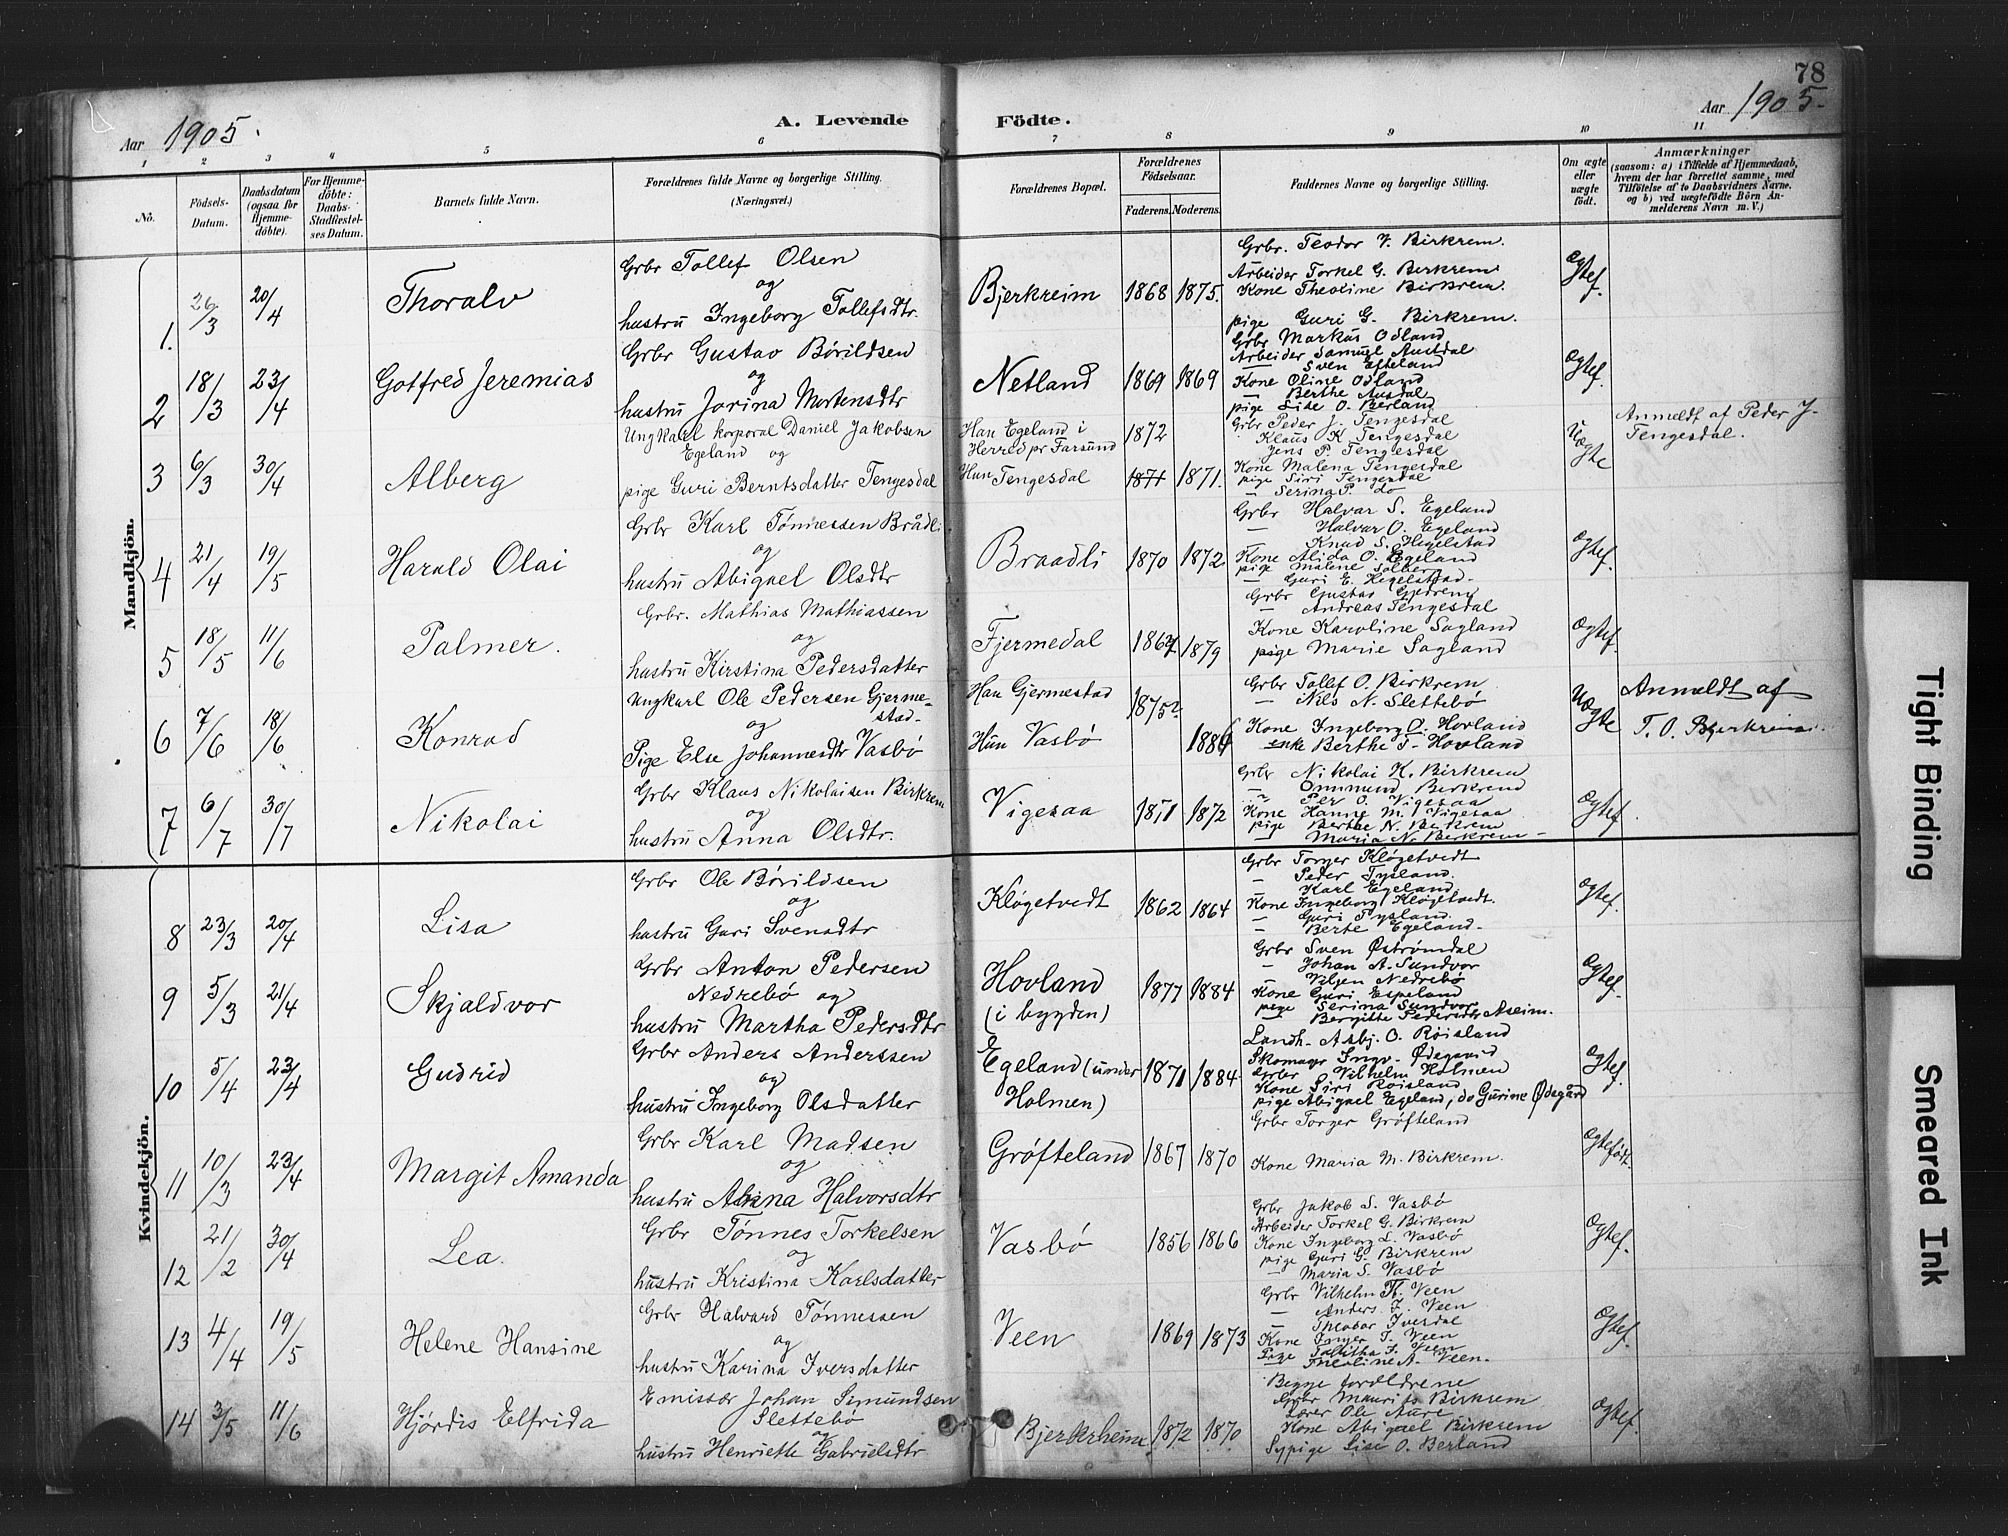 78
Aar 1905.
A. Levende Födte.
Aar 1905.
1 2 3 4 5 6 7 8 9 10 11
No.
Födsels-Datum.
Daabsdatum (ogsaa for Hjemmedöbte).
For Hjemmedöbte: Daabs-Stadfestelses Datum.
Barnets fulde Navn.
Forældrenes fulde Navne og borgerlige Stilling. (Næringsvei.)
Forældrenes Bopæl.
Forældrenes Födselsaar.
Faderens. Moderens.
Faddernes Navne og borgerlige Stilling.
Om ægte eller uægte födt.
Anmærkninger
(saasom: a) i Tilfælde af Hjemmedaab, hvem der har forrettet samme, med Tilföielse af to Daabsvidners Navne, og b) ved uægtefödte Börn Anmelderens Navn m. V.)
Mandkjön.
1. 26/3 20/4 Thoralv
Grbr Tollef Olsen
og
hustru Ingeborg Tollefsdtr.
Bjerkreim 1868 1875.
Grbr. Teodor V. Birkrem.
Arbeider Torkel G. Birkrem
Kone Theoline Birkrem.
pige Guri G. Birkrem.
Ægtef.
2 18/3 23/4 Gotfred Jeremias
Grbr Gustav Börildsen
og
hustru Jorina Mortensdtr
Netland 1869 1869
Grbr Markus Odland
Arbeider Samuel Austdal
— Sven Efteland
Kone Oline Odland
— Berthe Ausdal
pige Lise O. Berland
Ægtef.
3 6/3 30/4 Alberg
Ungkarl korporal Daniel Jakobsen
Egeland og
pige Guri Berntsdatter Tengesdal
Han Egeland i
Herred pr Farsund
Hun Tengesdal
1872
1871 1871.
Grbr Peder J. Tengesdal
Klaus K Tengesdal
Jens P Tengesdal
Kone Malena Tengesdal
pige Siri Tengesdal
— Serina P. do
Uægte
Anmeldt af Peder J.
Tengesdal.
4 21/4 19/5 Harald Olai
Grbr Karl Tönnessen Brådli
og
hustru Abigael Olsdtr
Braadli 1870 1872
Grbr Halvar S. Egeland
— Halvar O. Egeland
— Knud S. Hegelstad
Kone Alida O. Egeland
pige Malene Solberg
— Guri E. Hegelstad.
Ægtef.
5 18/5 11/6 Palmer.
Grbr. Mathias Mathiassen
og
hustru Kirstina Pedersdatter
Fjermedal 1867 1879
Grbr Gustav Gjedrem
— Andreas Tengesdal
Kone Karoline Sagland
pige Marie Sagland
Ægtef.
6 7/6 18/6 Konrad
Ungkarl Ole Pedersen Gjerme-
stad.
og
Pige Else Johannesdtr Vasbö
Han Gjermestad
Hun Vasbö
1875?
1886
Grbr Tollef O. Birkrem
— Nils N. Slettebö
Kone Ingeborg O. Hovland
enke Berthe T. Hovland
Uægte
Anmeldt af
T. O. Bjerkreim
7 6/7 30/7 Nikolai
Grbr Klaus Nikolaisen Birkrem
og
hustru Anna Olsdtr.
Vigesaa 1871 1872
Grbr Nikolai K. Birkrem
— Ommund Birkrem
" Per O. Vigesaa
Kone Hanne M. Vigesaa
pige Berthe N. Birkrem
— Maria N. Birkrem
Ægtef.
Kvindekjön.
8 23/3 20/4 Lisa
Grbr Ole Börildsen
og
hustru Guri Svensdtr
Klögetvedt 1862 1864
Grbr Torger Klögetvedt
— Peder Tysland.
— Karl Egeland.
Kone Ingeborg Klögetvedt.
— Guri Tysland.
— Berte Egeland.
Ægtef.
9 5/3 21/4 Skjaldvor
Grbr Anton Pedersen
Nedrebö og
hustru Martha Pedersdtr
Hovland
(i bygden)
1877 1884
Grbr Sven Öströmdal
— Johan A. Sundvor
— Viljen Nedrebö
Kone Guri Espeland
pige Serina Sundvor
— Bergitte Pedersdtr Aseim.
Ægtef.
10 5/4 23/4 Gudrid
Grbr Anders Anderssen
og
hustru Ingeborg Olsdatter
Egeland (under
Holmen)
1871 1884
Landh. Asbj. O. Röisland
Skomager Ingv. Ödegaard
Grbr Vilhelm Holmen
Kone Siri Röisland
pige Abigael Egeland, do Gurine Ödegård
Ægtef.
11 10/3 23/4 Margit Amanda
Grbr Karl Madsen
og
hustru Anna Halvorsdtr
Gröfteland 1867 1870
Grbr Torger Gröfteland
Kone Maria M. Birkrem.
Ægtefödt.
12 21/2 30/4 Lea.
Grbr Tönnes Torkelsen
og
hustru Kristina Karlsdatter
Vasbö 1856 1866
Grbr Jakob S. Vasbö
Arbeider Torkel G. Birkrem
Kone Ingeborg L. Vasbö
pige Guri G. Birkrem
— Maria S. Vasbö
Ægtef.
13 4/4 19/5 Helene Hansine
Grbr Halvard Tönnessen
og
hustru Karina Iversdatter
Veen 1869 1873
Grbr Vilhelm Th. Veen
— Anders I. Veen
— Theodor Iversdal
Kone Inger T. Veen
Pige Tabitha I. Veen
— Theoline A. Veen.
Ægtef.
14 3/5 11/6 Hjördis Elfrida
Emissær Johan Semundsen
Slettebö
og
hustru Henriette Gabrielsdtr
Bjerkrheim 1872 1870
Begge forældrene
Grbr Maurits Birkrem
Lærer Ole Aure
Kone Abigael Birkrem
Sypige Lise O. Berland
Ægtef.
Tight Binding
Smeared Ink